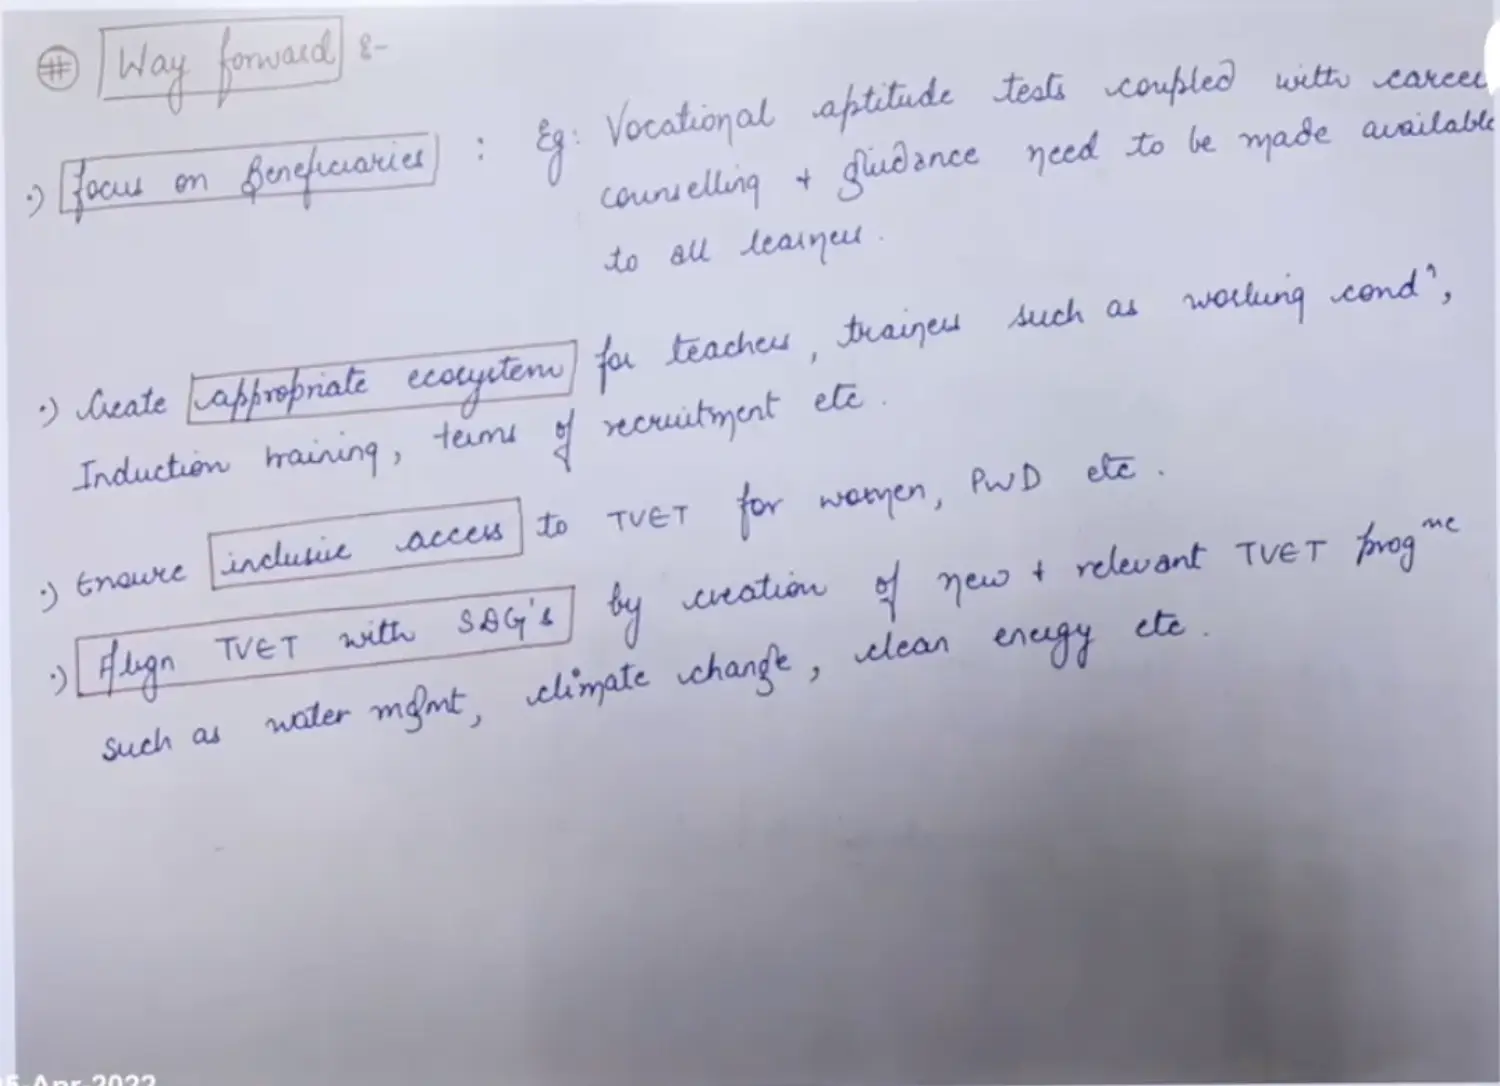 # Way forward :-
·) Focus on Beneficiaries : Eg: Vocational aptitude tests coupled with career
counselling + guidance need to be made available
to all learners.
·) Create appropriate ecosystem for teachers, trainers such as working condⁿ,
Induction training, terms of recruitment etc.
·) Ensure inclusive access to TVET for women, PwD etc.
·) Align TVET with SDG's by creation of new + relevant TVET progᵐᵉ
such as water mgmt, climate change, clean energy etc.
Apr 2022